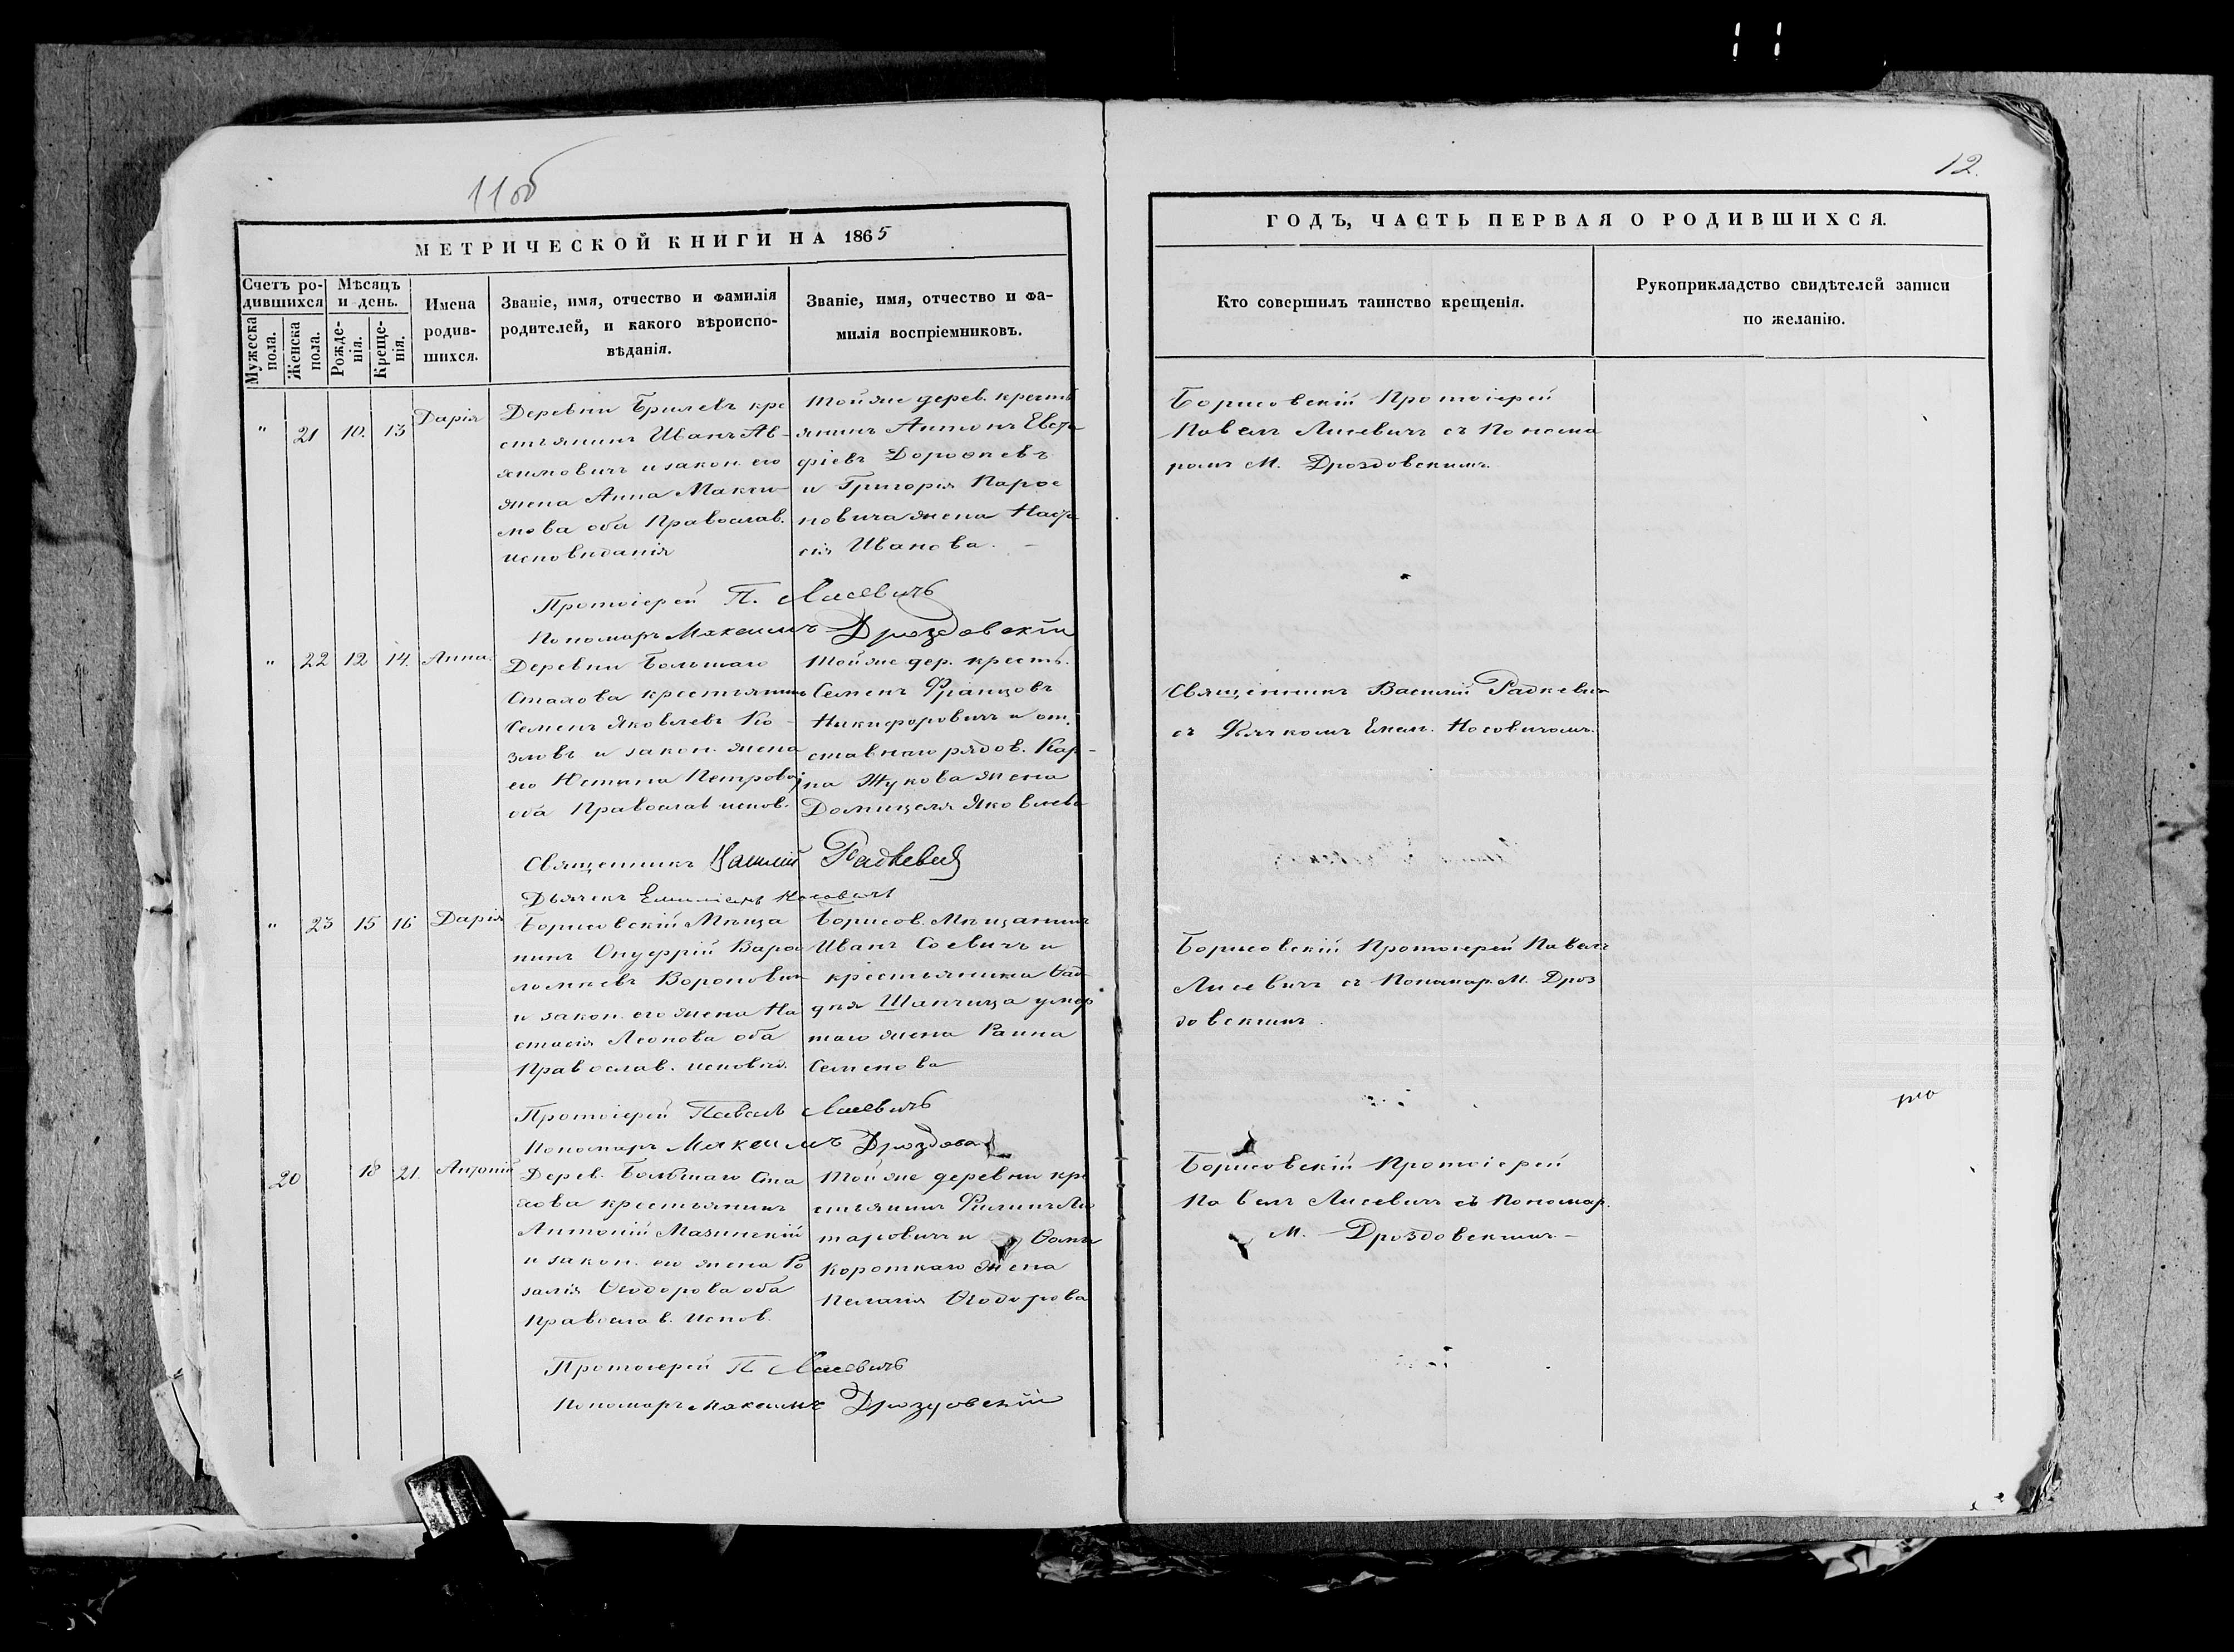 11 об
12.
МЕТРИЧЕСКОЙ КНИГИ НА 1865
ГОДЪ, ЧАСТЬ ПЕРВАЯ О РОДИВШИХСЯ.
Счетъ ро-
дившихся
Мужеска
пола.
Женска
пола.
Мѣсяцъ
и день.
Рожде-
нія.
Креще-
нія.
Имена
родив-
шихся.
Званіе, имя, отчество и фамилія
родителей, и какого вѣроиспо-
вѣданія.
Званіе, имя, отчество и фа-
милія воспріемниковъ.
Кто совершилъ таинство крещенія.
Рукоприкладство свидѣтелей записи
по желанію.
" 21 10. 13 Дарія
Деревни Брилевъ кре
стьянинъ Иванъ Ав-
химовичъ и закон. его
жена Анна Макси-
мова оба Православ.
исповиданія
Тойже дерев. кресть
янинъ Антонъ Евста
фіевъ Дорофеевъ
и Григорія Парфе
новича жена Наста
сія Иванова. –
Борисовскій Протоіерей
Павелъ Лисевичъ съ Понома
ромъ М. Дроздовскимъ.
Протоіерей П. Лисевичъ
Пономарь Максимъ Дроздовскій
" 22 12 14. Анна
Деревни Большаго
Стахова крестьянинъ
Семенъ Яковлевъ Ко-
зловъ и закон. жена
его Юстина Петрова
оба Православ испов.
Тойже дер. кресть.
Семенъ Францовъ
Никифоровичъ и от.
ставнаго рядов. Кар-
па Жукова жена
Домицеля Яковлева
Священникъ Василій Радкевич
съ Дьячкомъ Емел. Носовичомъ.
Священникъ Василій Радкевичъ
Дьячекъ Емиліанъ Носовичъ
" 23 15 16 Дарія
Борисовскій Мѣща
нинъ Онуфрій Варфо
ломѣевъ Вороновичъ
и закон. его жена На
стасія Леонова оба
Православ. исповѣд.
Борисов. Мѣщанинъ
Иванъ Соевичъ и
крестьянина Фад
дея Шапчица умер
таго жена Раина
Семенова
Борисовскій Протоіерей Павелъ
Лисевичъ съ Пономар. М. Дроз
довскимъ.
Протоіерей Павелъ Лисевичъ
Пономарь Максимъ Дроздовскій
20 18 21. Антоній
Дерев. Большаго Ста
хова крестьянинъ
Антоній Мазинскій
и закон. его жена Ро
залія Ѳеодорова оба
Православ. Испов.
Тойже деревни кре
стьянинъ Филипъ Ли
таровичъ и Ѳомы
Короткаго жена
Пелагія Ѳеодорова
Борисовскій Протоіерей
Павелъ Лисевичъ съ Пономар.
М. Дроздовскимъ. –
Протоіерей П. Лисевичъ
Пономарь Максимъ Дроздовскій